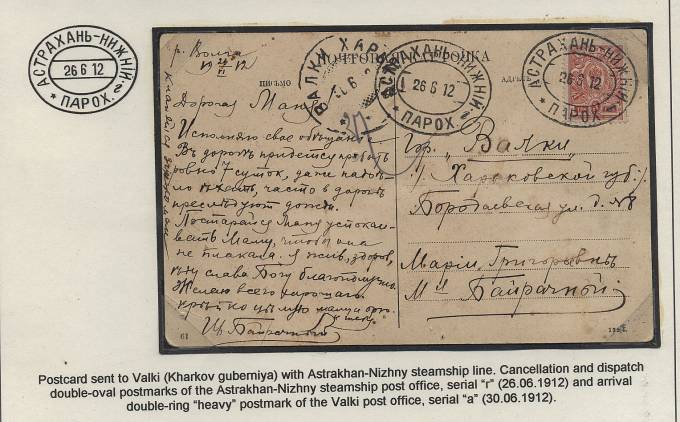 АСТРАХАНЬ-НИЖНІЙ
26 6 12
* ПАРОХ. *
ПОЧТОВАЯ КАРТОЧКА
р. Волга
19 26/VI 12
ПИСЬМО
ВАЛКИ ХАР
АСТРАХАНЬ-НИЖНІЙ
26 6 12
* ПАРОХ. *
АСТРАХАНЬ-НИЖНІЙ
26 6 12
* ПАРОХ. *
Дорогая Маня
Исполняю свое обещан
Въ дорогѣ придется
ровно 7 сутокъ, даже надоѣ-
ло ѣхать, часто въ дорогѣ
преслѣдуют дожди.
Постарайся Маня успокаи-
вать Маму, чтобы она
не плакала. Я живъ, здоровъ,
слава Богу благополучно.
Желаю всего хорошаго
крѣпко цѣлую
Байрачный
Гр. „Валки"
Харьковской губ.
Бородаевская ул. д. №8
Маріи Григорьевнѣ
Байрачной
61
Postcard sent to Valki (Kharkov guberniya) with Astrakhan-Nizhny steamship line. Cancellation and dispatch
double-oval postmarks of the Astrakhan-Nizhny steamship post office, serial “г” (26.06.1912) and arrival
double-ring “heavy” postmark of the Valki post office, serial “а” (30.06.1912).